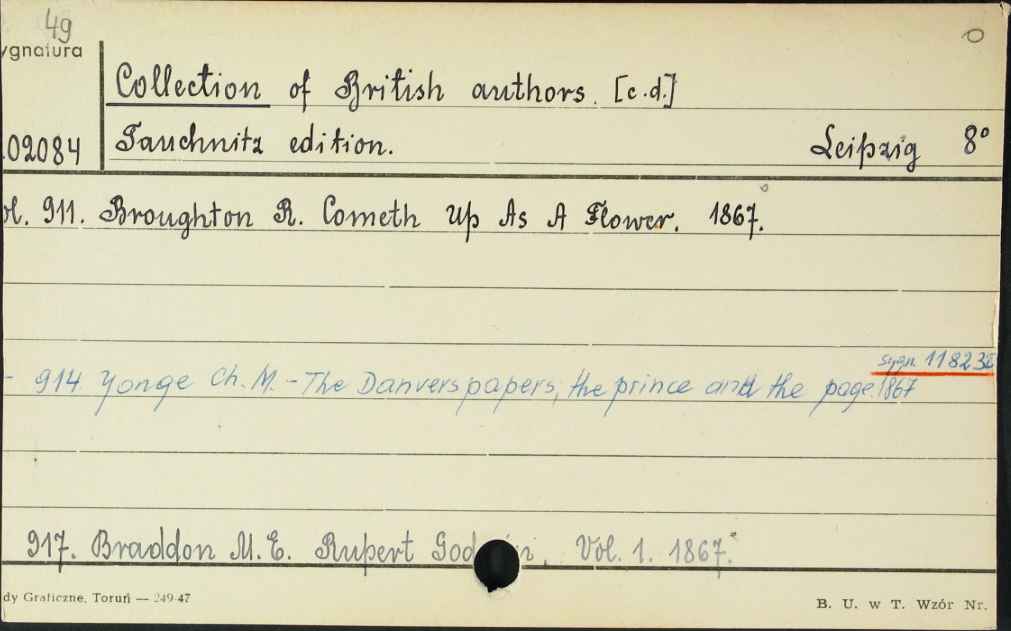 49
ygnatura
Collection of British authors. [c.d.]
02084 Tauchnitz edition. Leipzig 8°
ol. 911. Broughton R. Cometh Up As A Flower. 1867.
sygn. 118235
- 914 Yonge Ch. M. - The Danvers papers, the prince and the page. 1867
917. Braddon M. E. Rupert God in. Vol. 1. 1867.
dy Graficzne, Toruń — 249-47 B. U. w T. Wzór Nr.